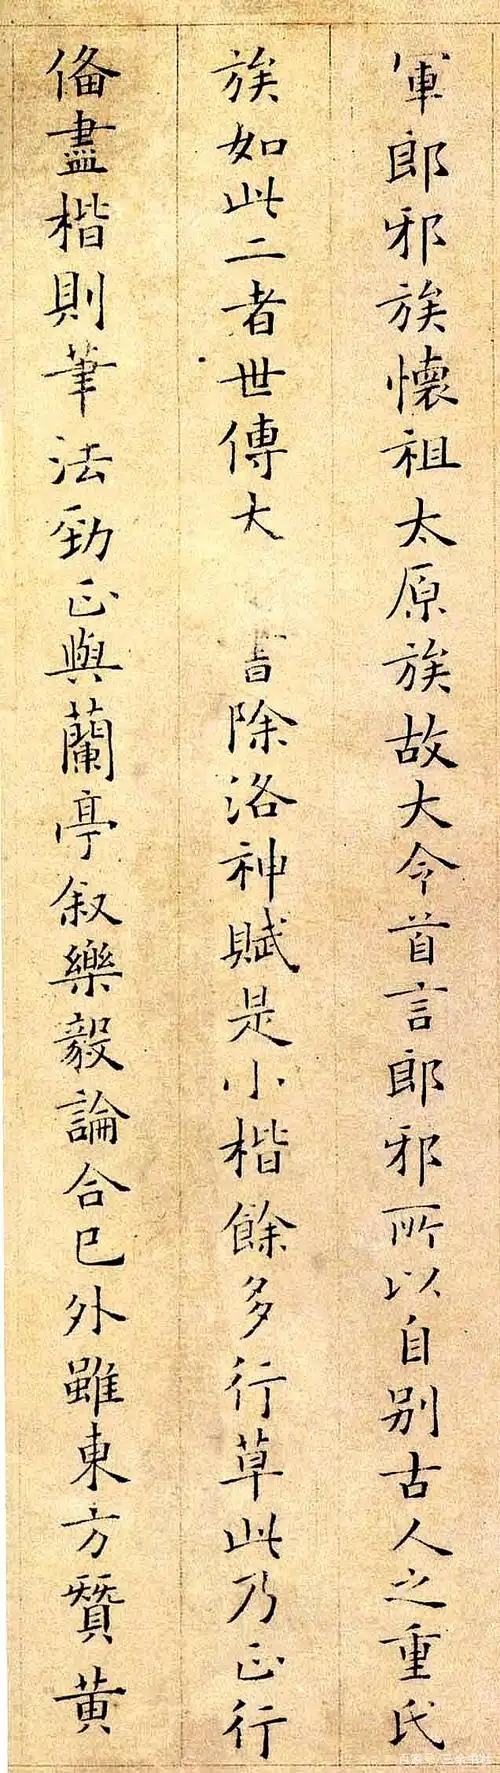 軍郎邪族懷祖太原族故大令首言郎邪所以自别古人之重氏
族如此二者世傳大書除洛神賦是小楷餘多行草此乃正行
俻盡楷則筆法勁正與蘭亭叙樂毅論合已外雖東方贊黃